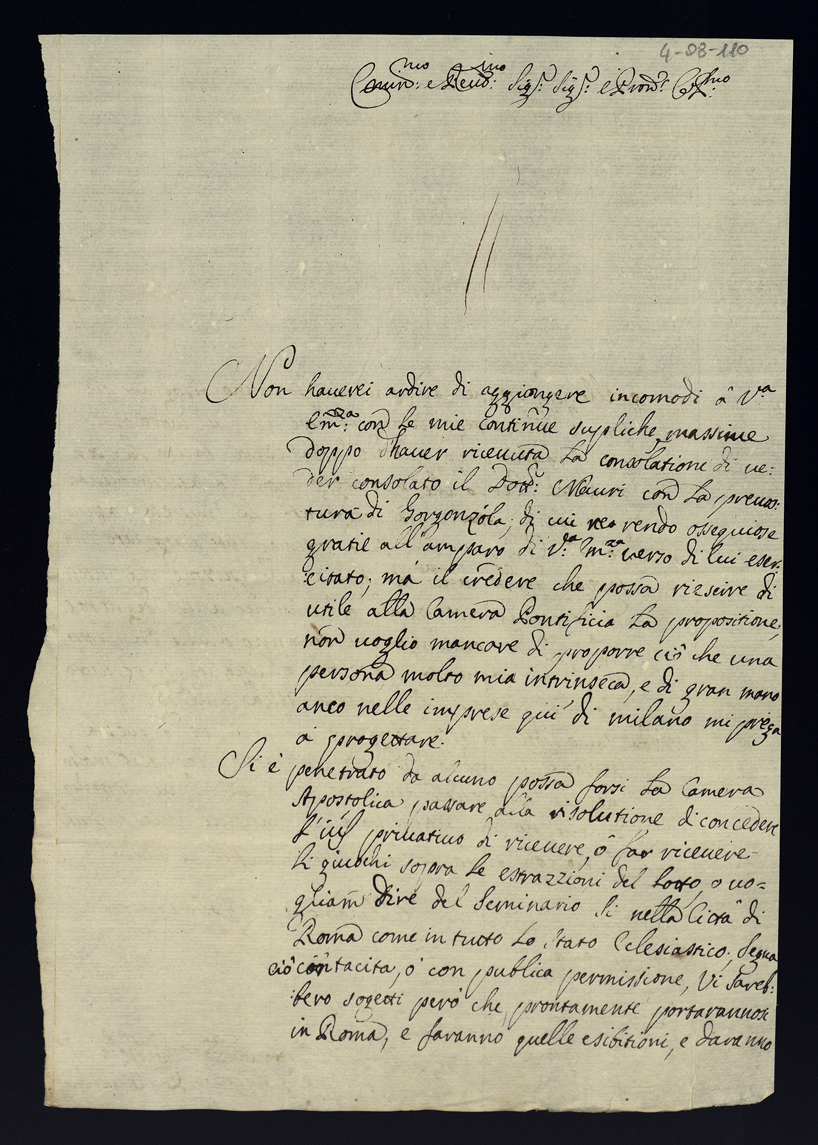 4-08-110
Emin.mo e Reud.mo Sig.r Sig.r e Pron.e Col.mo
Non hauerei ardire di aggiongere incomodi â V.a
Em.za con le mie continue supliche, massime
doppo d'hauer riceuuta la consolatione di ue-
der consolato il Dott.r Neuri con la preuos-
tura di Gorgonzola, di cui ne rendo osseguiose
gratie all'amparo di V.a Em.za uerso di lui eser-
citato; mà il credere che possa riescire di
utile alla Camera Pontificia la propositione,
non uoglio mancare di proporre ciò che una
persona molto mia intrinseca, e di gran mano
anco nelle imprese qui di milano mi prega
à progettare.
Si è penetrato da alcuno possa forsi la Camera
Apostolica passare alla risolutione di concedere
l'ius priuatiuo di riceuere, ò far riceuere
li giuochi sopra le estrazzioni del lotto, o uo-
gliam dire del Seminario sì nella Città di
Roma come in tutto lo stato Eclesiastico, segua
ciò con tacita, ò con publica permissione, Vi sareb-
bero sogetti però che prontamente portarannosi
in Roma, e faranno quelle esibitioni, e daranno